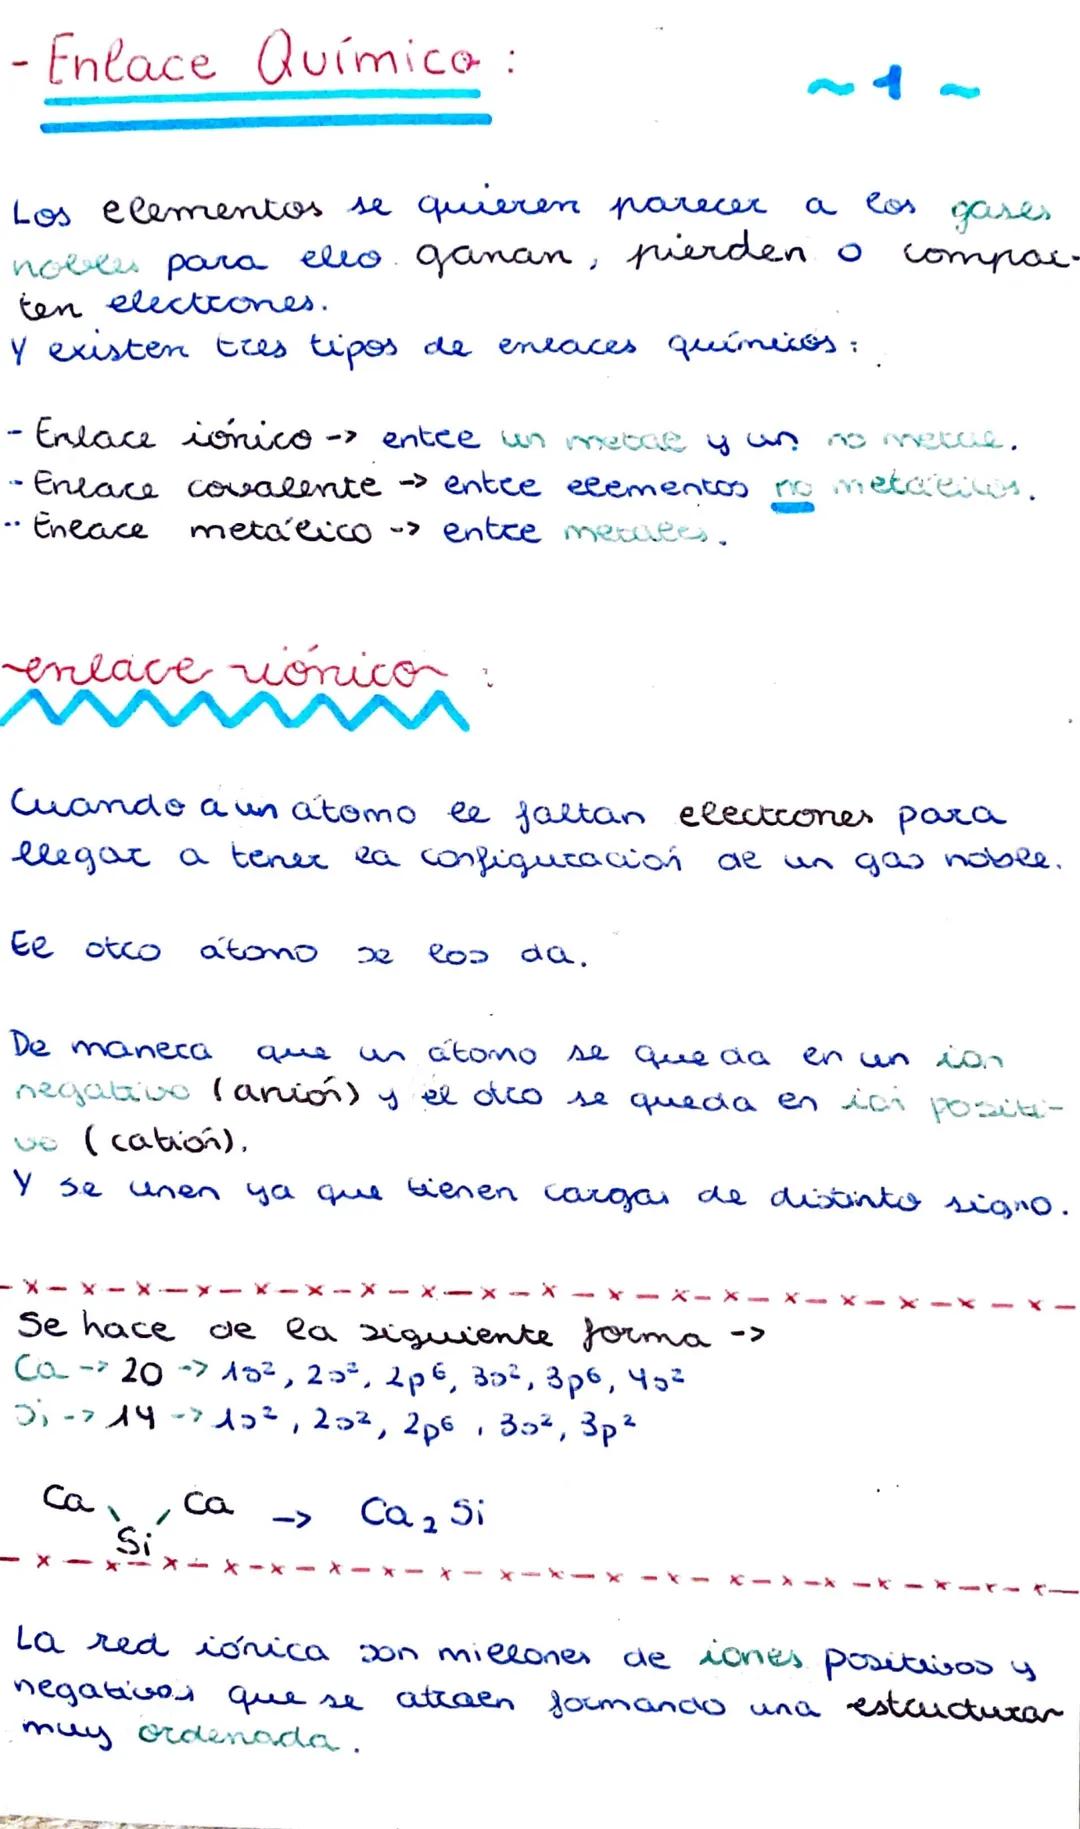 - Enlace Químico :
~ 1 ~
Los elementos se quieren parecer a los gases
nobles para ello ganan, pierden o compar-
ten electrones.
Y existen tres tipos de enlaces químicos:
- Enlace iónico -> entre un metal y un no metal.
- Enlace covalente -> entre elementos no metálicos.
- Enlace metálico -> entre metales.
enlace iónico :
Cuando a un átomo le faltan electrones para
llegar a tener la configuración de un gas noble.
El otro átomo se los da.
De manera que un átomo se queda en un ion
negativo (anión) y el otro se queda en ion positi-
vo (catión).
Y se unen ya que tienen cargas de distinto signo.
Se hace de la siguiente forma ->
Ca -> 20 -> 1s², 2s², 2p⁶, 3s², 3p⁶, 4s²
Si -> 14 -> 1s², 2s², 2p⁶, 3s², 3p²
Ca Ca -> Ca₂ Si
Si
La red iónica son millones de iones positivos y
negativos que se atraen formando una estructura
muy ordenada.